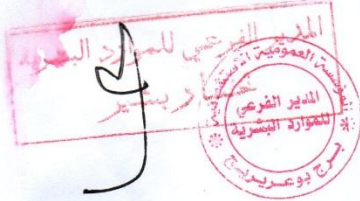 المدير الفرعي للموارد البشرية
بشير
المؤسسة العمومية
المدير الفرعي
للموارد البشرية
برج بوعريريج